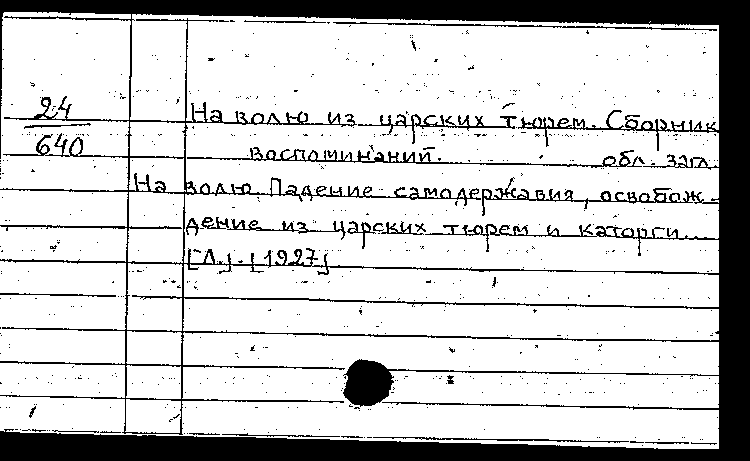 24
640
На волю из царских тюрем. Сборник
воспоминаний. обл. загл.
На волю. Падение самодержавия, освобож-
дение из царских тюрем и каторги...
[Л.]. [1927]